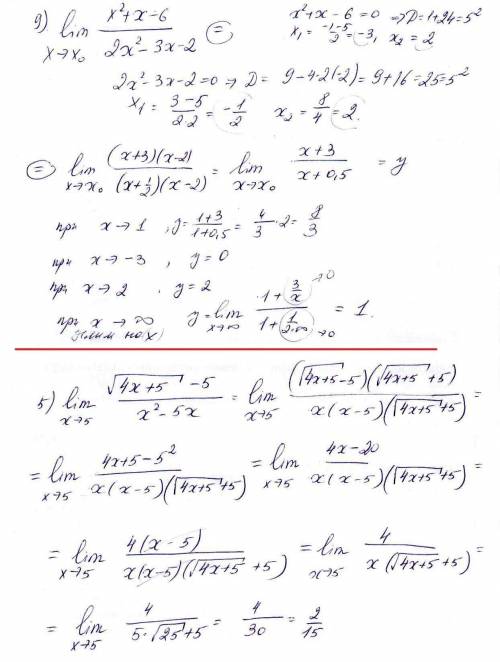 9) lim x→x₀ (x²+x-6)/(2x²-3x-2) =
x²+x-6=0 ⇒ D=1+24=5²
x₁ = (-1-5)/2 = -3, x₂ = 2
2x²-3x-2=0 ⇒ D = 9-4·2(-2) = 9+16=25=5²
x₁ = (3-5)/(2·2) = -1/2 x₂ = 8/4 = 2.
= lim x→x₀ ((x+3)(x-2))/((x+1/2)(x-2)) = lim x→x₀ (x+3)/(x+0,5) = y
при x→1 , y = (1+3)/(1+0,5) = 4/3 ·2 = 8/3
при x→-3 , y=0
при x→2 , y=2
при x→∞ y = lim x→∞ (1+3/x →0)/(1+1/(2·∞) →0) = 1.
(делим на x)
5) lim x→5 (√(4x+5) -5)/(x²-5x) = lim x→5 ((√(4x+5)-5)(√(4x+5)+5))/(x(x-5)(√(4x+5)+5)) =
= lim x→5 (4x+5-5²)/(x(x-5)(√(4x+5)+5)) = lim x→5 (4x-20)/(x(x-5)(√(4x+5)+5)) =
= lim x→5 (4(x-5))/(x(x-5)(√(4x+5)+5)) = lim x→5 4/(x(√(4x+5)+5)) =
= lim x→5 4/(5·√25+5) = 4/30 = 2/15